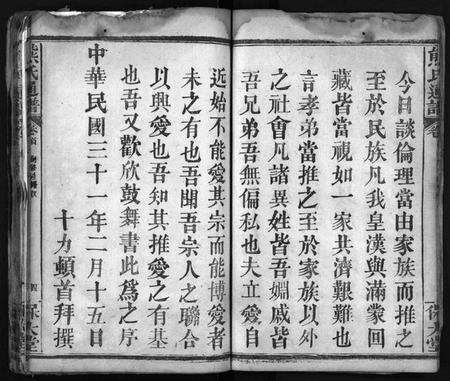 今日談倫理當由家族而推之
至於民族凡我皇漢與滿蒙回
藏皆當視如一家共濟艱難也
言孝弟當推之至於家族以外
之社會凡諸異姓皆吾婣戚皆
吾兄弟吾無偏私也夫立愛自
近始不能愛其宗而能博愛者
未之有也吾聞吾宗人之聯合
以興愛也吾知其推愛之有基
也吾又歡欣鼓舞書此爲之序
中華民國三十一年二月十五日
十力頓首拜撰
熊氏通譜
卷首
四
保大堂
熊氏通譜
保大堂